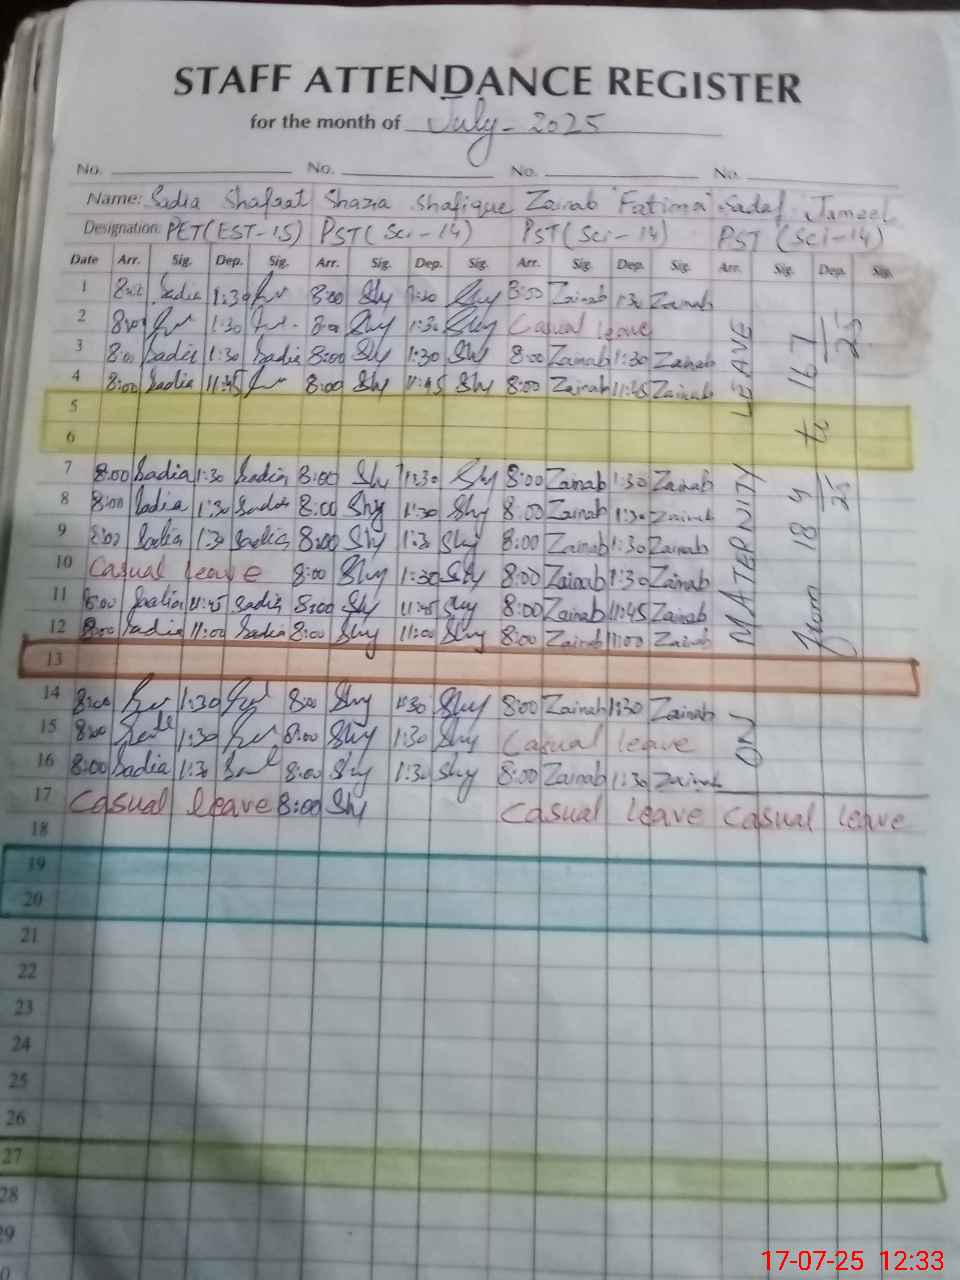 STAFF ATTENDANCE REGISTER
for the month of July - 2025
No. No. No. No.
Name: Sadia Shafaat Shazia Shafique Zainab "Fatima" Sadaf Jameel
Designation: PET(EST-15) PST(Sci-14) PST(Sci-14) PST (Sci-14)
Date Arr. Sig. Dep. Sig. Arr. Sig. Dep. Sig. Arr. Sig. Dep. Sig. Arr. Sig. Dep. Sig.
1 Sadia 1:30 8:00 Shy 1:30 Shy 8:00 Zainab 1:30 Zainab
2 8:00 1:30 8:00 Shy 1:30 Shy Casual leave
3 8:00 Sadia 1:30 Sadia 8:00 Shy 1:30 Shy 8:00 Zainab 1:30 Zainab
4 8:00 Sadia 11:45 8:00 Shy 11:45 Shy 8:00 Zainab 11:45 Zainab
5
6
7 8:00 Sadia 1:30 Sadia 8:00 Shy 1:30 Shy 8:00 Zainab 1:30 Zainab
8 8:00 Sadia 1:30 Sadia 8:00 Shy 1:30 Shy 8:00 Zainab 1:30 Zainab
9 8:00 Sadia 1:30 Sadia 8:00 Shy 1:3 Shy 8:00 Zainab 1:30 Zainab
10 Casual leave 8:00 Shy 1:30 Shy 8:00 Zainab 1:30 Zainab
11 8:00 Sadia 11:45 Sadia 8:00 Shy 11:45 Shy 8:00 Zainab 11:45 Zainab
12 8:00 Sadia 11:00 Sadia 8:00 Shy 11:00 Shy 8:00 Zainab 11:00 Zainab
13
14 8:00 1:30 8:00 Shy 1:30 Shy 8:00 Zainab 1:30 Zainab
15 8:00 1:30 8:00 Shy 1:30 Shy Casual leave
16 8:00 Sadia 1:30 8:00 Shy 1:30 Shy 8:00 Zainab 1:30 Zainab
ON MATERNITY LEAVE
from 18 4/25 to 16 7/25
17 Casual leave 8:00 Shy Casual leave Casual leave
18
19
20
21
22
23
24
25
26
27
28
29
17-07-25 12:33